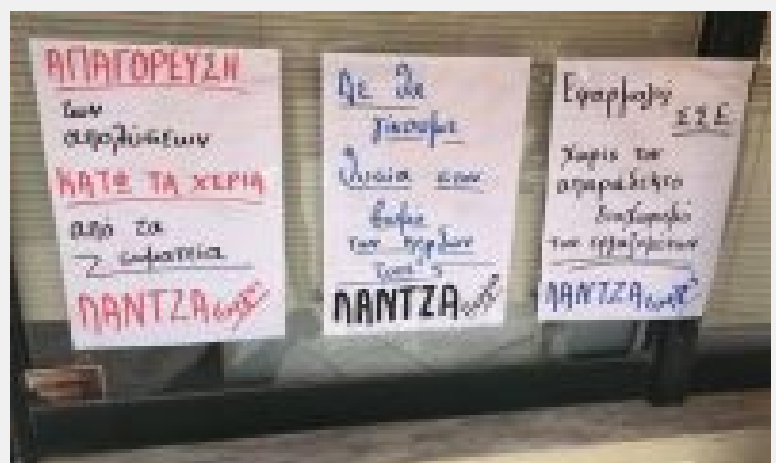 ΑΠΑΓΟΡΕΥΣΗ
των
απολύσεων
ΚΑΤΩ ΤΑ ΧΕΡΙΑ
από τα
Σωματεία
ΛΑΝΤΖΑ
Δε θα
γίνουμε
θυσία στον
βωμό
των κερδών
τους
ΛΑΝΤΖΑ
Εφαρμογή
ΣΣΕ
χωρίς τον
απαράδεκτο
διαχωρισμό
των εργαζομένων
ΛΑΝΤΖΑ